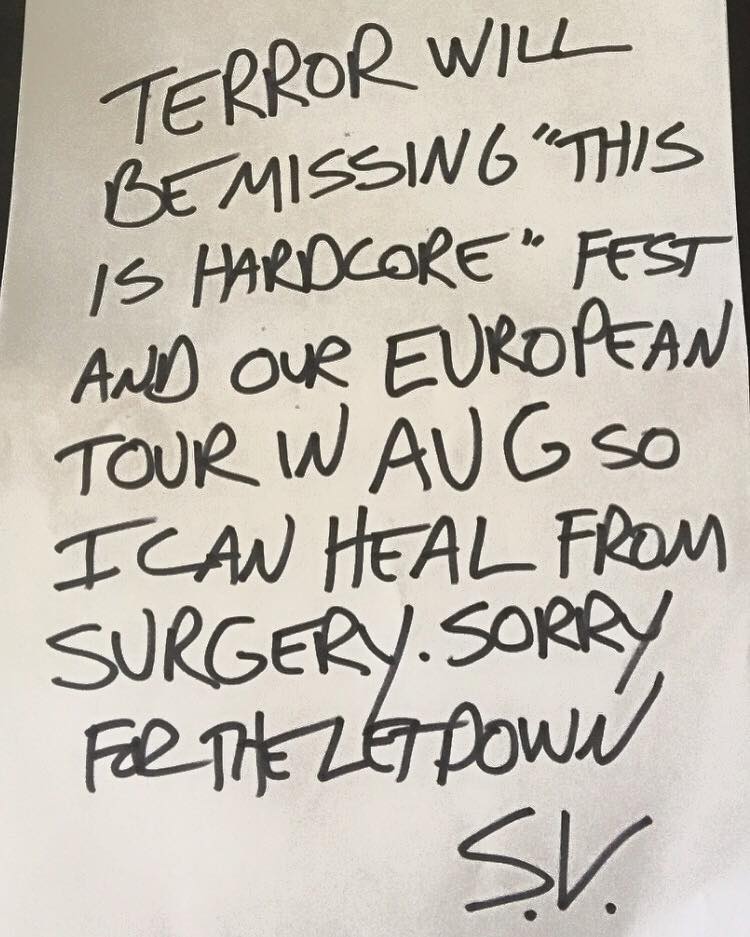 TERROR WILL
BE MISSING "THIS
IS HARDCORE" FEST
AND OUR EUROPEAN
TOUR IN AUG SO
I CAN HEAL FROM
SURGERY. SORRY
FOR THE LET DOWN
S.V.